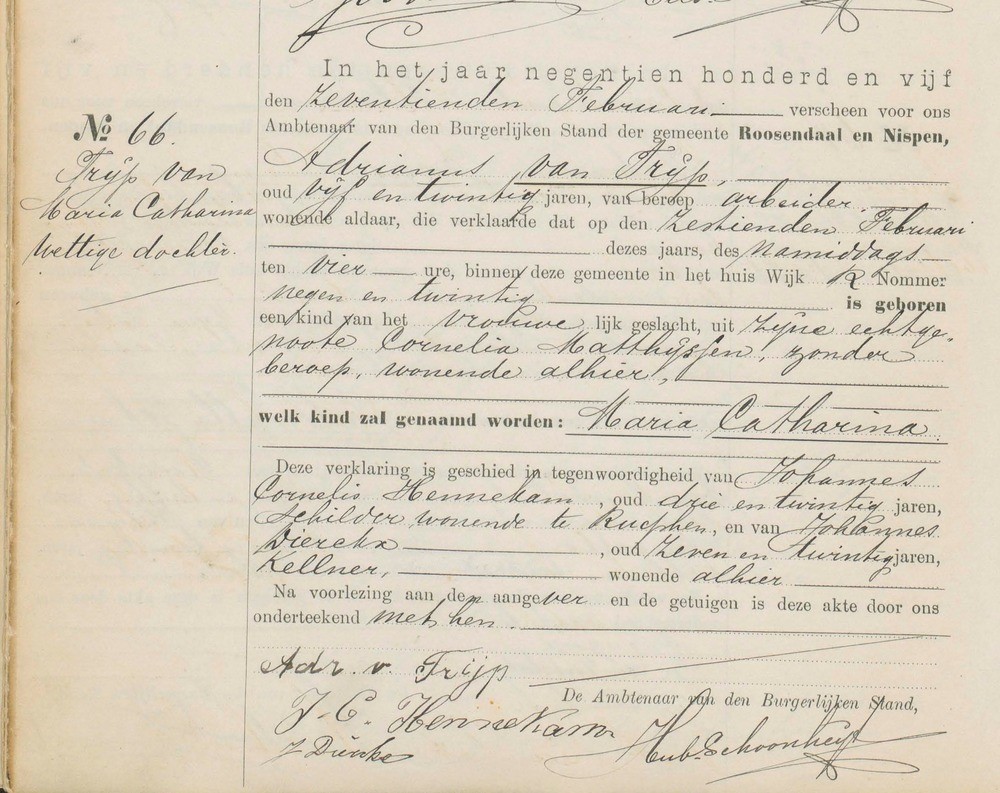 No 66.
Trijp van
Maria Catharina
wettige dochter.
In het jaar negentien honderd en vijf
den zeventienden Februari verscheen voor ons
Ambtenaar van den Burgerlijken Stand der gemeente Roosendaal en Nispen,
Adrianus van Trijp,
oud vijf en twintig jaren, van beroep arbeider
wonende aldaar, die verklaarde dat op den zestienden Februari
dezes jaars, des namiddags
ten vier ure, binnen deze gemeente in het huis Wijk R Nommer
negen en twintig is geboren
een kind van het vrouwe lijk geslacht, uit zijne echtge-
noote Cornelia Matthijssen, zonder
beroep, wonende alhier,
welk kind zal genaamd worden: Maria Catharina
Deze verklaring is geschied in tegenwoordigheid van Johannes
Cornelis Hennekam, oud drie en twintig jaren,
schilder wonende te Rucphen, en van Johannes
Dierckx, oud zeven en twintig jaren,
kellner, wonende alhier
Na voorlezing aan den aangever en de getuigen is deze akte door ons
onderteekend met hen.
Adr. v. Trijp
De Ambtenaar van den Burgerlijken Stand,
J. C. Hennekam
Hub. Schoonheyt
J Dierckx